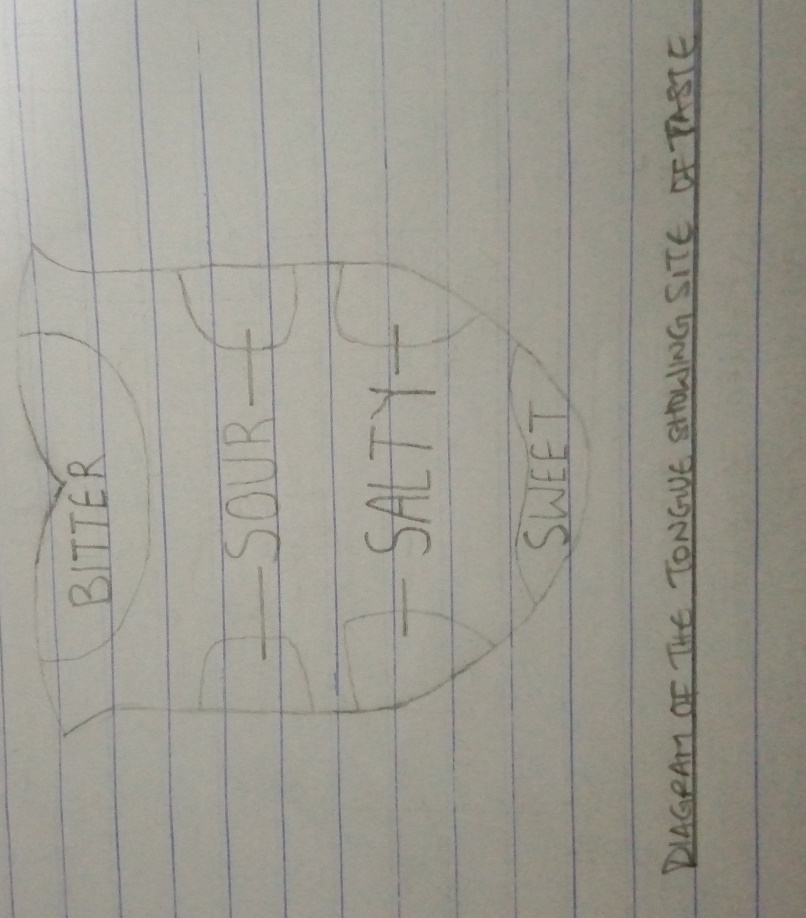 BITTER
SOUR
SALTY
SWEET
DIAGRAM OF THE TONGUE SHOWING SITE OF TASTE